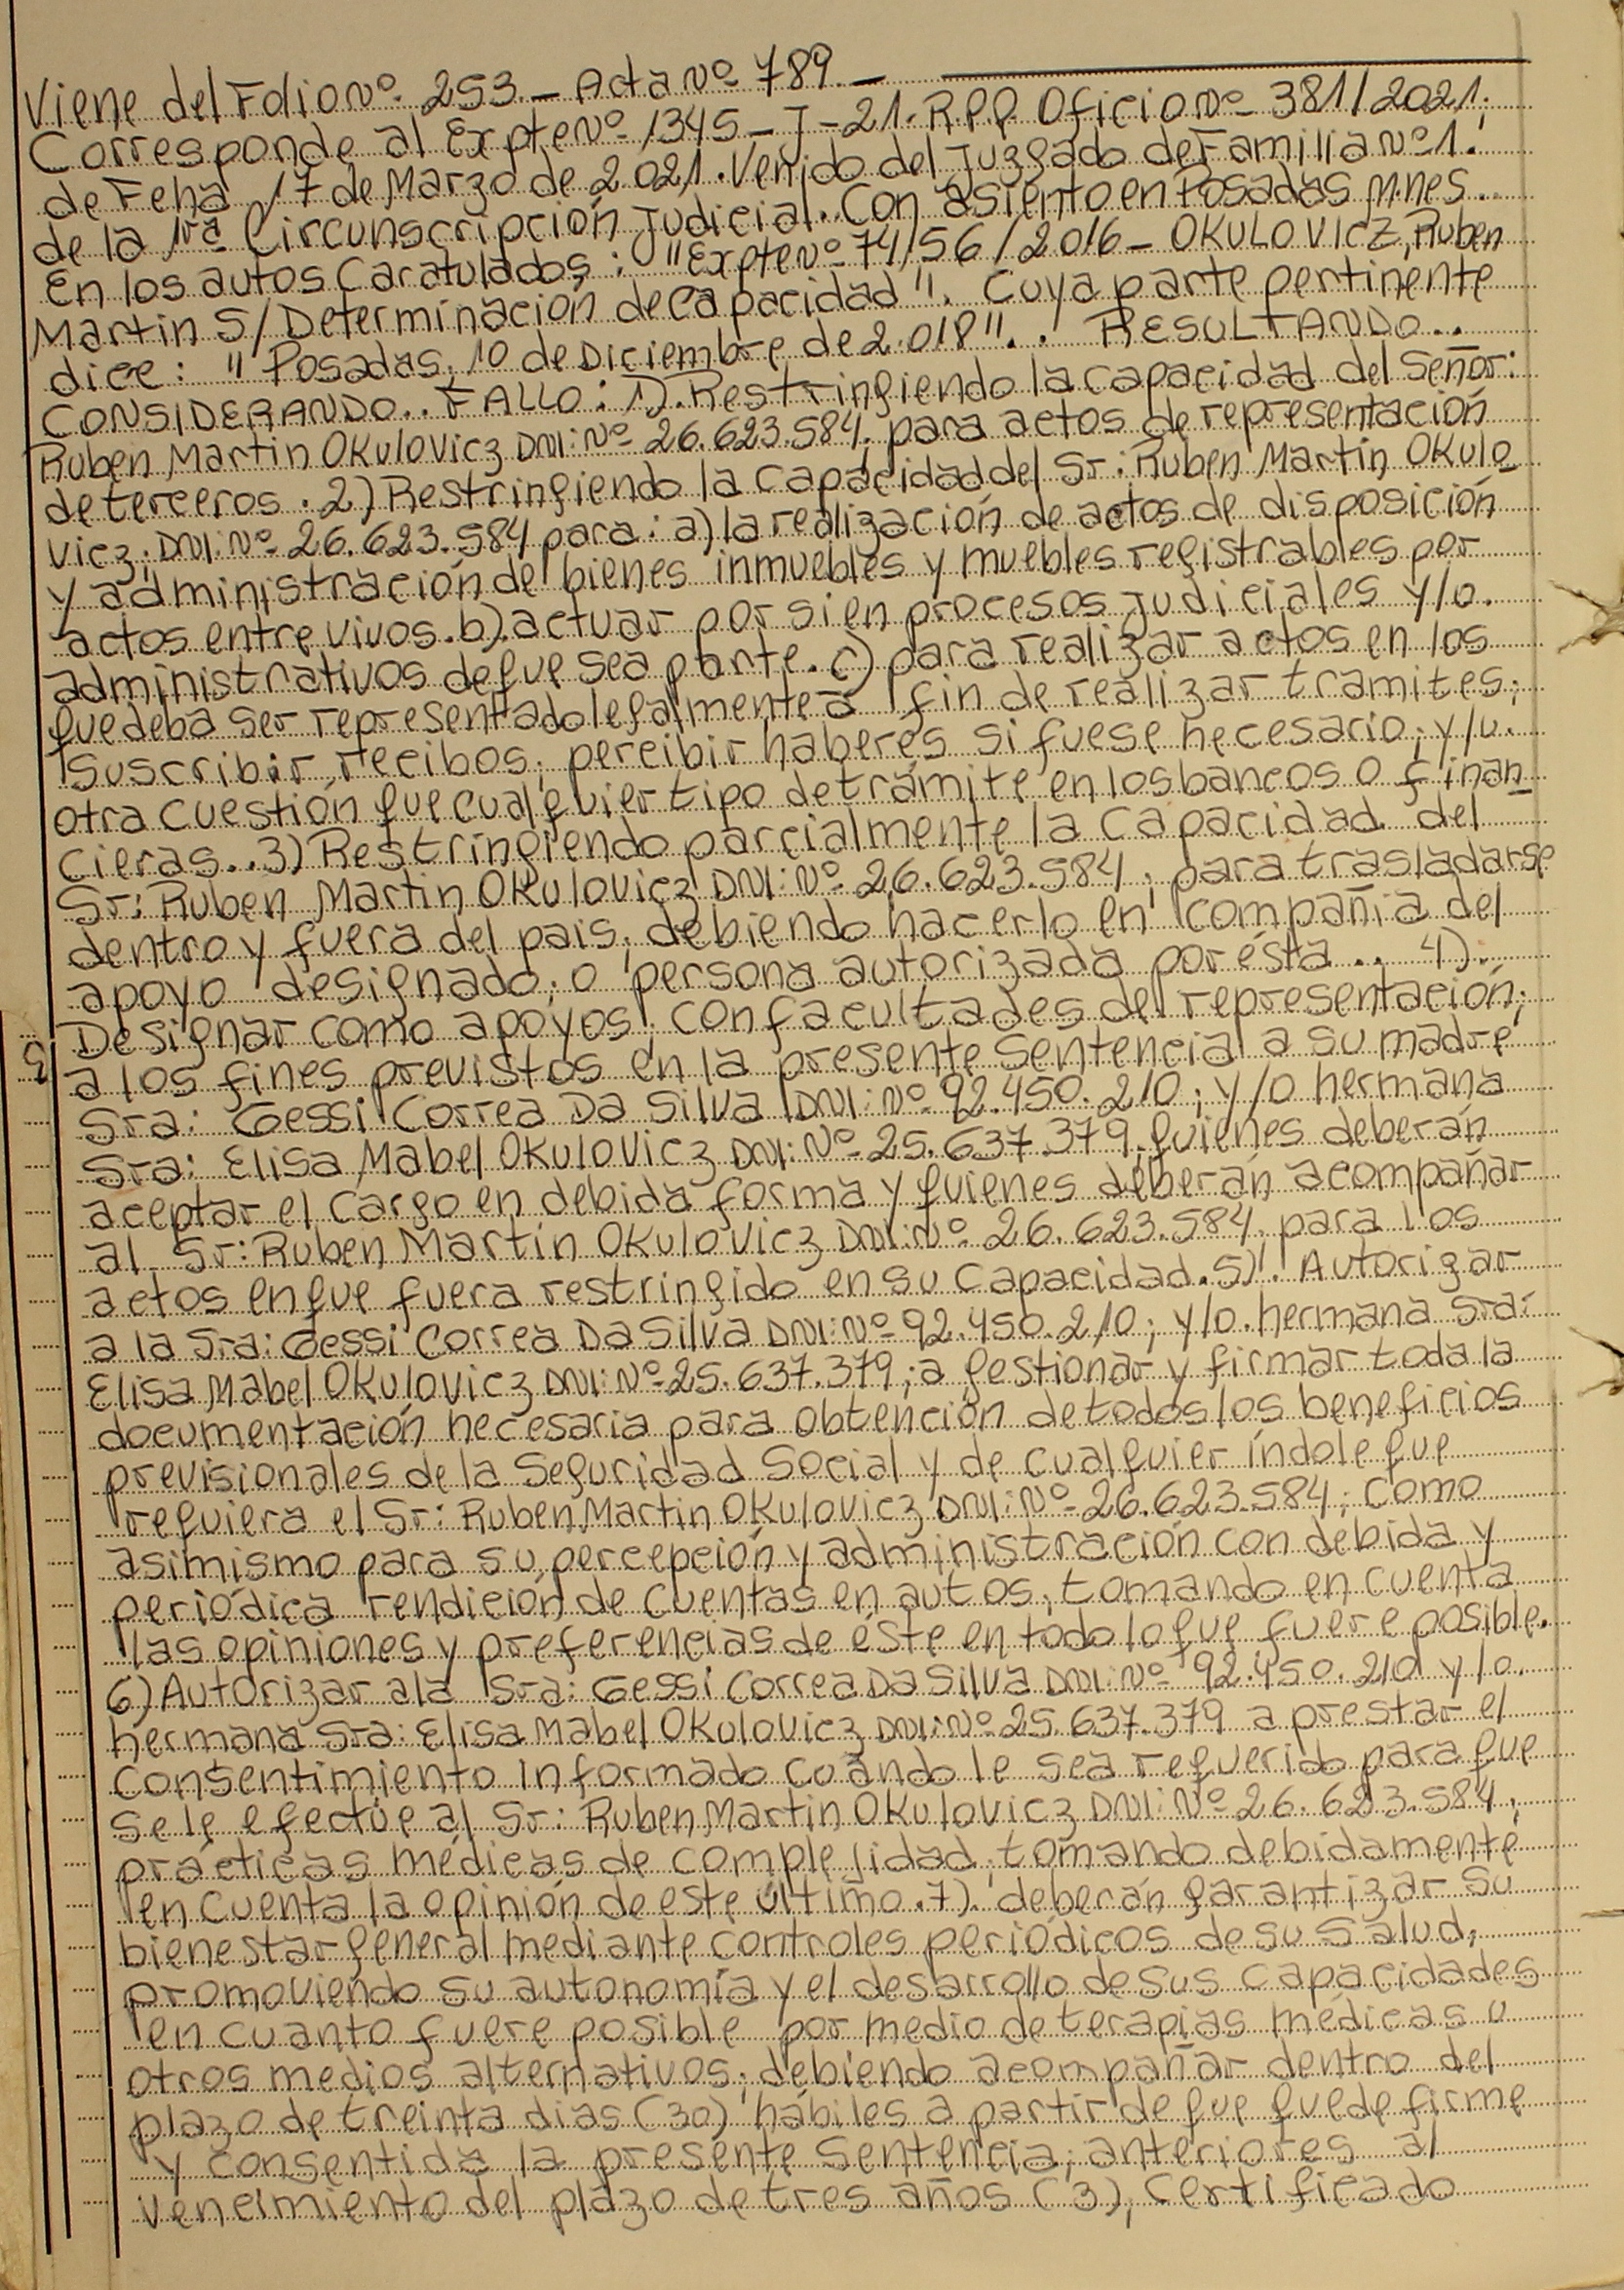 Viene del Folio Nº 253 – Acta Nº 789. –
Corresponde al Expte Nº 1345 – J – 21 - R.P.P. Oficio Nº 381/2021;
de Feha 17 de Marzo de 2021. Venido del Juzgado de Familia Nº 1.
de la 1ra Circunscripción Judicial. Con asiento en Posadas Mnes..
En los autos Caratulados: "Expte Nº 74156/2016 – OKULOVICZ, Ruben
Martin S/ Determinación de Capacidad". Cuya parte pertinente
dice: "Posadas, 10 de Diciembre de 2.018".. RESULTANDO..
CONSIDERANDO.. FALLO: 1). Restringiendo la capacidad del Señor:
Ruben Martin Okulovicz DNI: Nº 26.623.584, para actos de representación
de terceros. 2) Restringiendo la Capacidad del Sr: Ruben Martin Okulo
vicz; DNI: Nº 26.623.584 para: a) la realización de actos de disposición
y administración de bienes inmuebles y muebles registrables por
actos entre vivos. b). actuar por si en procesos Judiciales y/o.
administrativos de que sea parte. c) para realizar actos en los
que deba ser representado legalmente a fin de realizar tramites;
suscribir, recibos; percibir haberes si fuese necesario; y/u.
otra cuestión que cualquier tipo de trámite en los bancos o finan
cieras.. 3) Restringiendo parcialmente la Capacidad del
Sr: Ruben Martin Okulovicz DNI: Nº 26.623.584, para trasladarse
dentro y fuera del pais, debiendo hacerlo en compañia del
apoyo designado; o persona autorizada por ésta.. 4).
Designar como apoyos; con facultades de representación;
a los fines previstos en la presente sentencia a su madre
Sra: Gessi Correa Da Silva DNI: Nº 92.450.210; y/o hermana
Sra: Elisa Mabel Okulovicz DNI: Nº 25.637.379, quienes deberán
aceptar el cargo en debida forma y quienes deberán acompañar
al Sr: Ruben Martin Okulovicz DNI: Nº 26.623.584, para los
actos en que fuera restringido en su Capacidad. 5). Autorizar
a la Sra: Gessi Correa Da Silva DNI: Nº 92.450.210; y/o. hermana Sra:
Elisa Mabel Okulovicz DNI: Nº 25.637.379; a gestionar y firmar toda la
documentación necesaria para obtención de todos los beneficios
previsionales de la Seguridad Social y de cualquier índole que
requiera el Sr: Ruben Martin Okulovicz DNI: Nº 26.623.584; como
asimismo para su percepción y administración con debida y
periódica rendición de cuentas en autos; tomando en cuenta
las opiniones y preferencias de éste en todo lo que fuere posible.
6) Autorizar a la Sra: Gessi Correa Da Silva DNI: Nº 92.450.210 y/o.
hermana Sra: Elisa Mabel Okulovicz DNI: Nº 25.637.379 a prestar el
consentimiento informado cuando le sea requerido para que
se le efectúe al Sr: Ruben Martin Okulovicz DNI: Nº 26.623.584;
prácticas médicas de complejidad; tomando debidamente
en cuenta la opinión de este último. 7). deberán garantizar su
bienestar general mediante controles periódicos de su salud;
promoviendo su autonomía y el desarrollo de sus capacidades
en cuanto fuere posible por medio de terapias médicas u
otros medios alternativos; debiendo acompañar dentro del
plazo de treinta dias (30) hábiles a partir de que quede firme
y consentida la presente sentencia; anteriores al
vencimiento del plazo de tres años (3), certificado